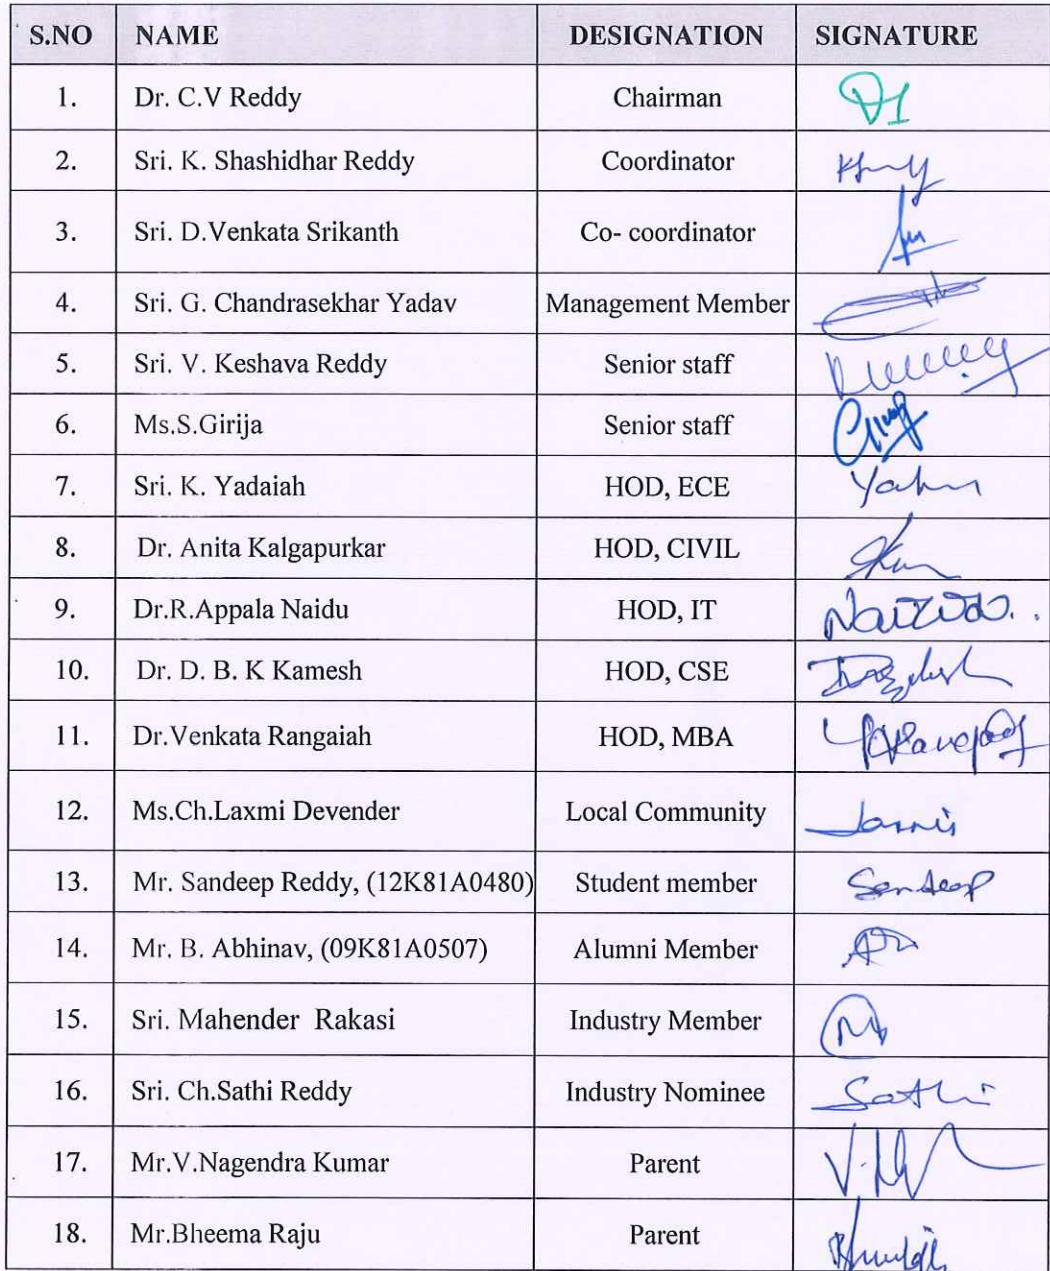 S.NO NAME DESIGNATION SIGNATURE
1. Dr. C.V Reddy Chairman
2. Sri. K. Shashidhar Reddy Coordinator
3. Sri. D.Venkata Srikanth Co- coordinator
4. Sri. G. Chandrasekhar Yadav Management Member
5. Sri. V. Keshava Reddy Senior staff
6. Ms.S.Girija Senior staff
7. Sri. K. Yadaiah HOD, ECE
8. Dr. Anita Kalgapurkar HOD, CIVIL
9. Dr.R.Appala Naidu HOD, IT
10. Dr. D. B. K Kamesh HOD, CSE
11. Dr.Venkata Rangaiah HOD, MBA
12. Ms.Ch.Laxmi Devender Local Community
13. Mr. Sandeep Reddy, (12K81A0480) Student member Sandeep
14. Mr. B. Abhinav, (09K81A0507) Alumni Member
15. Sri. Mahender Rakasi Industry Member
16. Sri. Ch.Sathi Reddy Industry Nominee Sathi
17. Mr.V.Nagendra Kumar Parent
18. Mr.Bheema Raju Parent